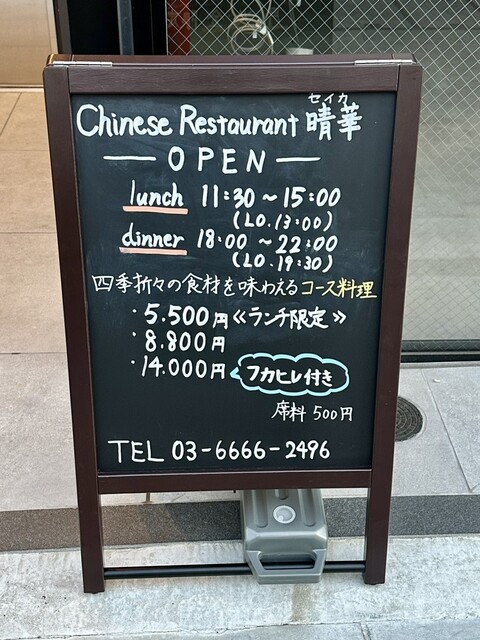 セイカ
Chinese Restaurant 晴華
— OPEN —
lunch 11:30～15:00
(L.O. 13:00)
dinner 18:00～22:00
(L.O. 19:30)
四季折々の食材を味わえるコース料理
・5.500円≪ランチ限定≫
・8.800円
・14.000円 フカヒレ付き
席料 500円
TEL 03-6666-2496